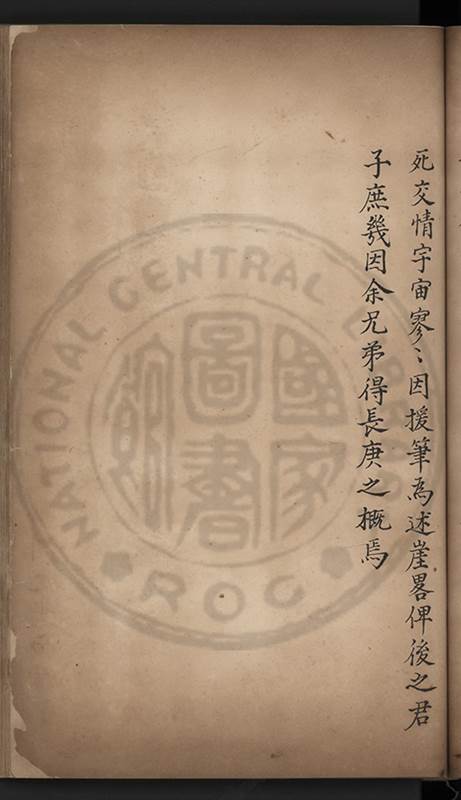 死交情宇宙寥〻因援筆爲述崖畧俾後之君
子庶幾因余兄弟得長庚之概焉
NATIONAL CENTRAL LIBRARY
國家圖書館
ROC